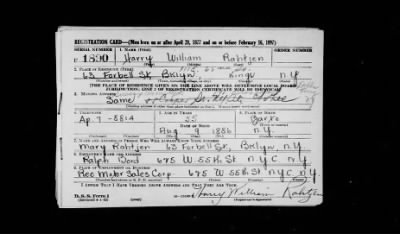 REGISTRATION CARD—(Men born on or after April 28, 1877 and on or before February 16, 1897)
SERIAL NUMBER 1. NAME (Print) ORDER NUMBER
U 1890 Harry William Rahtjen
2. PLACE OF RESIDENCE (Print)
63 Forbell St, Bklyn, Kings N.Y.
[THE PLACE OF RESIDENCE GIVEN ON THE LINE ABOVE WILL DETERMINE LOCAL BOARD JURISDICTION; LINE 2 OF REGISTRATION CERTIFICATE WILL BE IDENTICAL]
3. MAILING ADDRESS
Same
4. TELEPHONE 5. AGE IN YEARS 6. PLACE OF BIRTH
55
DATE OF BIRTH
Aug 9 1886 N.Y.
7. NAME AND ADDRESS OF PERSON WHO WILL ALWAYS KNOW YOUR ADDRESS
Mary Rahtjen 63 Forbell St, Bklyn, N.Y.
8. EMPLOYER'S NAME AND ADDRESS
Ralph 675 W 55th St N.Y.C N.Y.
9. PLACE OF EMPLOYMENT OR BUSINESS
Reo Motor Sales Corp. 675 W 55th St N.Y.C N.Y.
I AFFIRM THAT I HAVE VERIFIED ABOVE ANSWERS AND THAT THEY ARE TRUE.
D. S. S. Form 1 Harry William Rahtjen